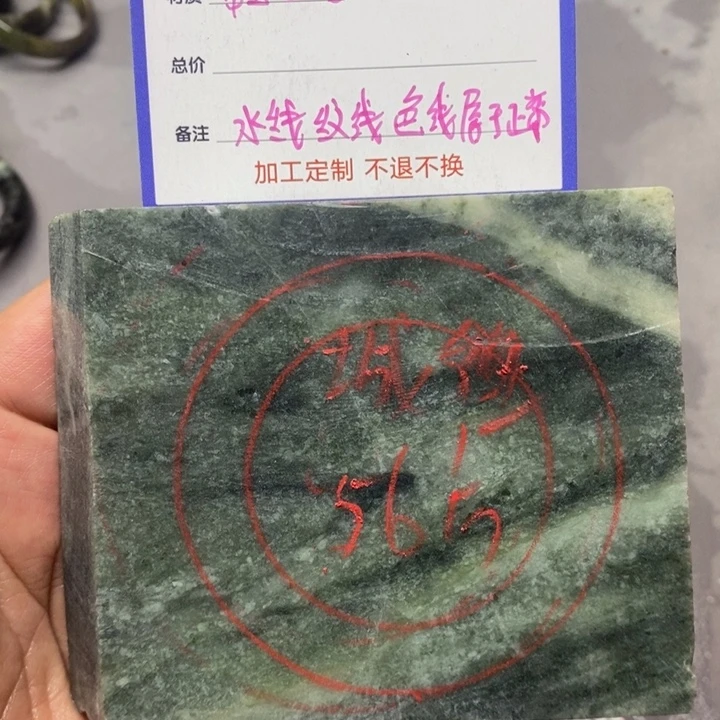 材质
总价
备注 水线纹线色线属于正常
加工定制 不退不换
56号